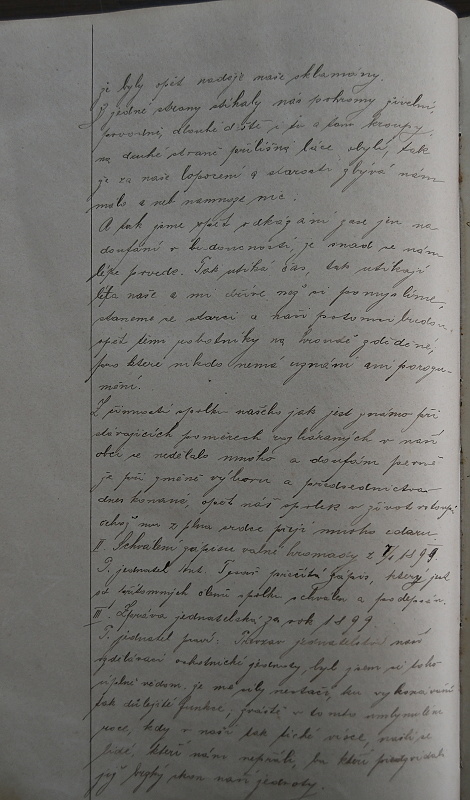 že byly opět naděje naše sklamány.
Z jedné strany stíhaly nás pohromy živelní,
povodně, dlouhé deště i tu a tam kroupy,
na druhé straně přílišná láce obylí, tak
že za naše lopocení a starosti zbývá nám
málo a neb namnoze nic.
A tak jsme opět odkázáni zase jen na
doufání v budoucnosti, že snad se nám
lépe povede. Tak utíká čas, tak utíkají
léta naše a mi dříve než si pomyslíme,
staneme se starci a naši potomci budou
opět těmi robotníky na hroudě zděděné,
pro které nikdo nemá uznání ani porozu-
mění.
Z činnosti spolku našeho jak jest známo při
stávajících poměrech v naší
obci se nedělalo mnoho a doufám pevně
že při změně výboru a předsednictva
dnes konané, opět náš spolek v život vstoupí
a mu z plna srdce přeji mnoho zdaru.
II. Schválení zápisu valné hromady z 1899.
P. jednatel Ant. přečítá zápis, který jest
od přítomných členů spolku schválen a podepsán.
III. Zpráva jednatelská za rok 1899.
P. jednatel praví: jednatelství naší
vzdělávací rolnické jednoty, byl jsem si toho
úplně vědom, že mé síly nestačí, ku vykonávání
tak důležité funkce, zvláště v tomto
roce, kdy v naší tak tiché vísce, našli se
lidé, kteří nám nepřáli, ba kteří předpovídali
již brzký skon naší jednoty.